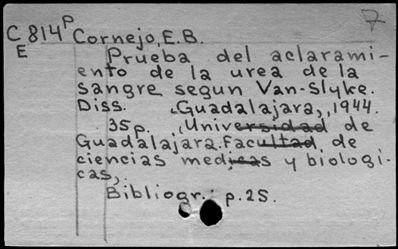 7
C814P Cornejo, E.B.
E Prueba del aclarami-
ento de la urea de la
sangre segun Van-Slyke.
Diss. Guadalajara, 1944.
35p. Universidad de
Guadalajara. Facultad de
ciencias medicas y biologi-
cas,
Bibliogr.: p.25.